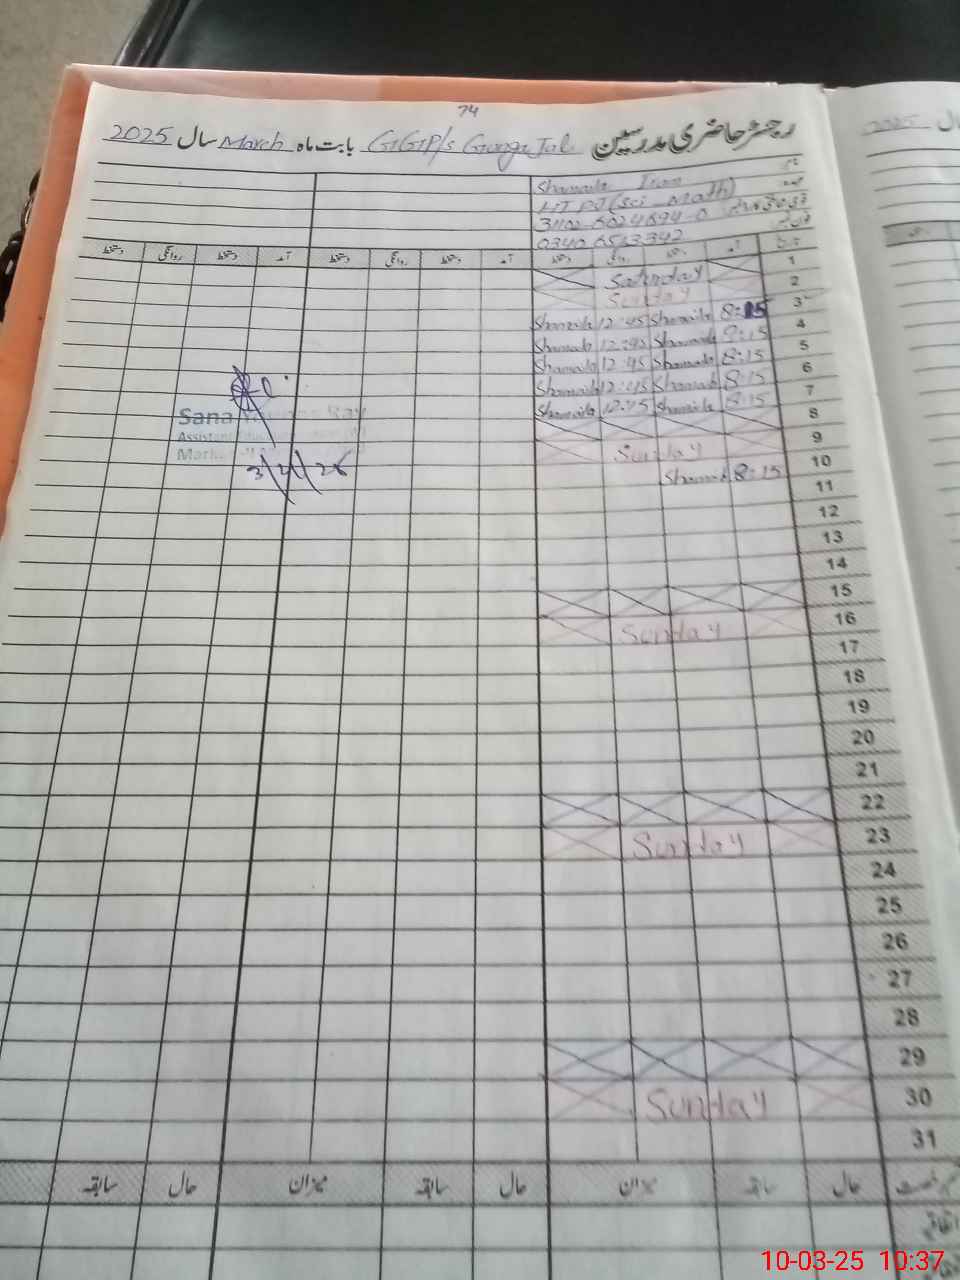 74
رجسٹر حاضری مدرسین GGP/s Ganga Jal بابت ماہ March سال 2025
نام Shamaila Iram
(Sci Math)
0340 6513342
تاریخ آمد دستخط روانگی دستخط آمد دستخط روانگی دستخط آمد دستخط روانگی دستخط
1 Saturday
2 Sunday
3 8:15 Shamaila 12:45 Shamaila
4 8:15 Shamaila 12:45 Shamaila
5 8:15 Shamaila 12:45 Shamaila
6 8:15 Shamaila 12:45 Shamaila
7 8:15 Shamaila 12:45 Shamaila
8
9 Sunday
10 8:15 Shamaila
11
12
13
14
15
16 Sunday
17
18
19
20
21
22
23 Sunday
24
25
26
27
28
29
30 Sunday
31
حال سابقہ میزان حال سابقہ میزان حال سابقہ
Sana
Assistant
10-03-25 10:37